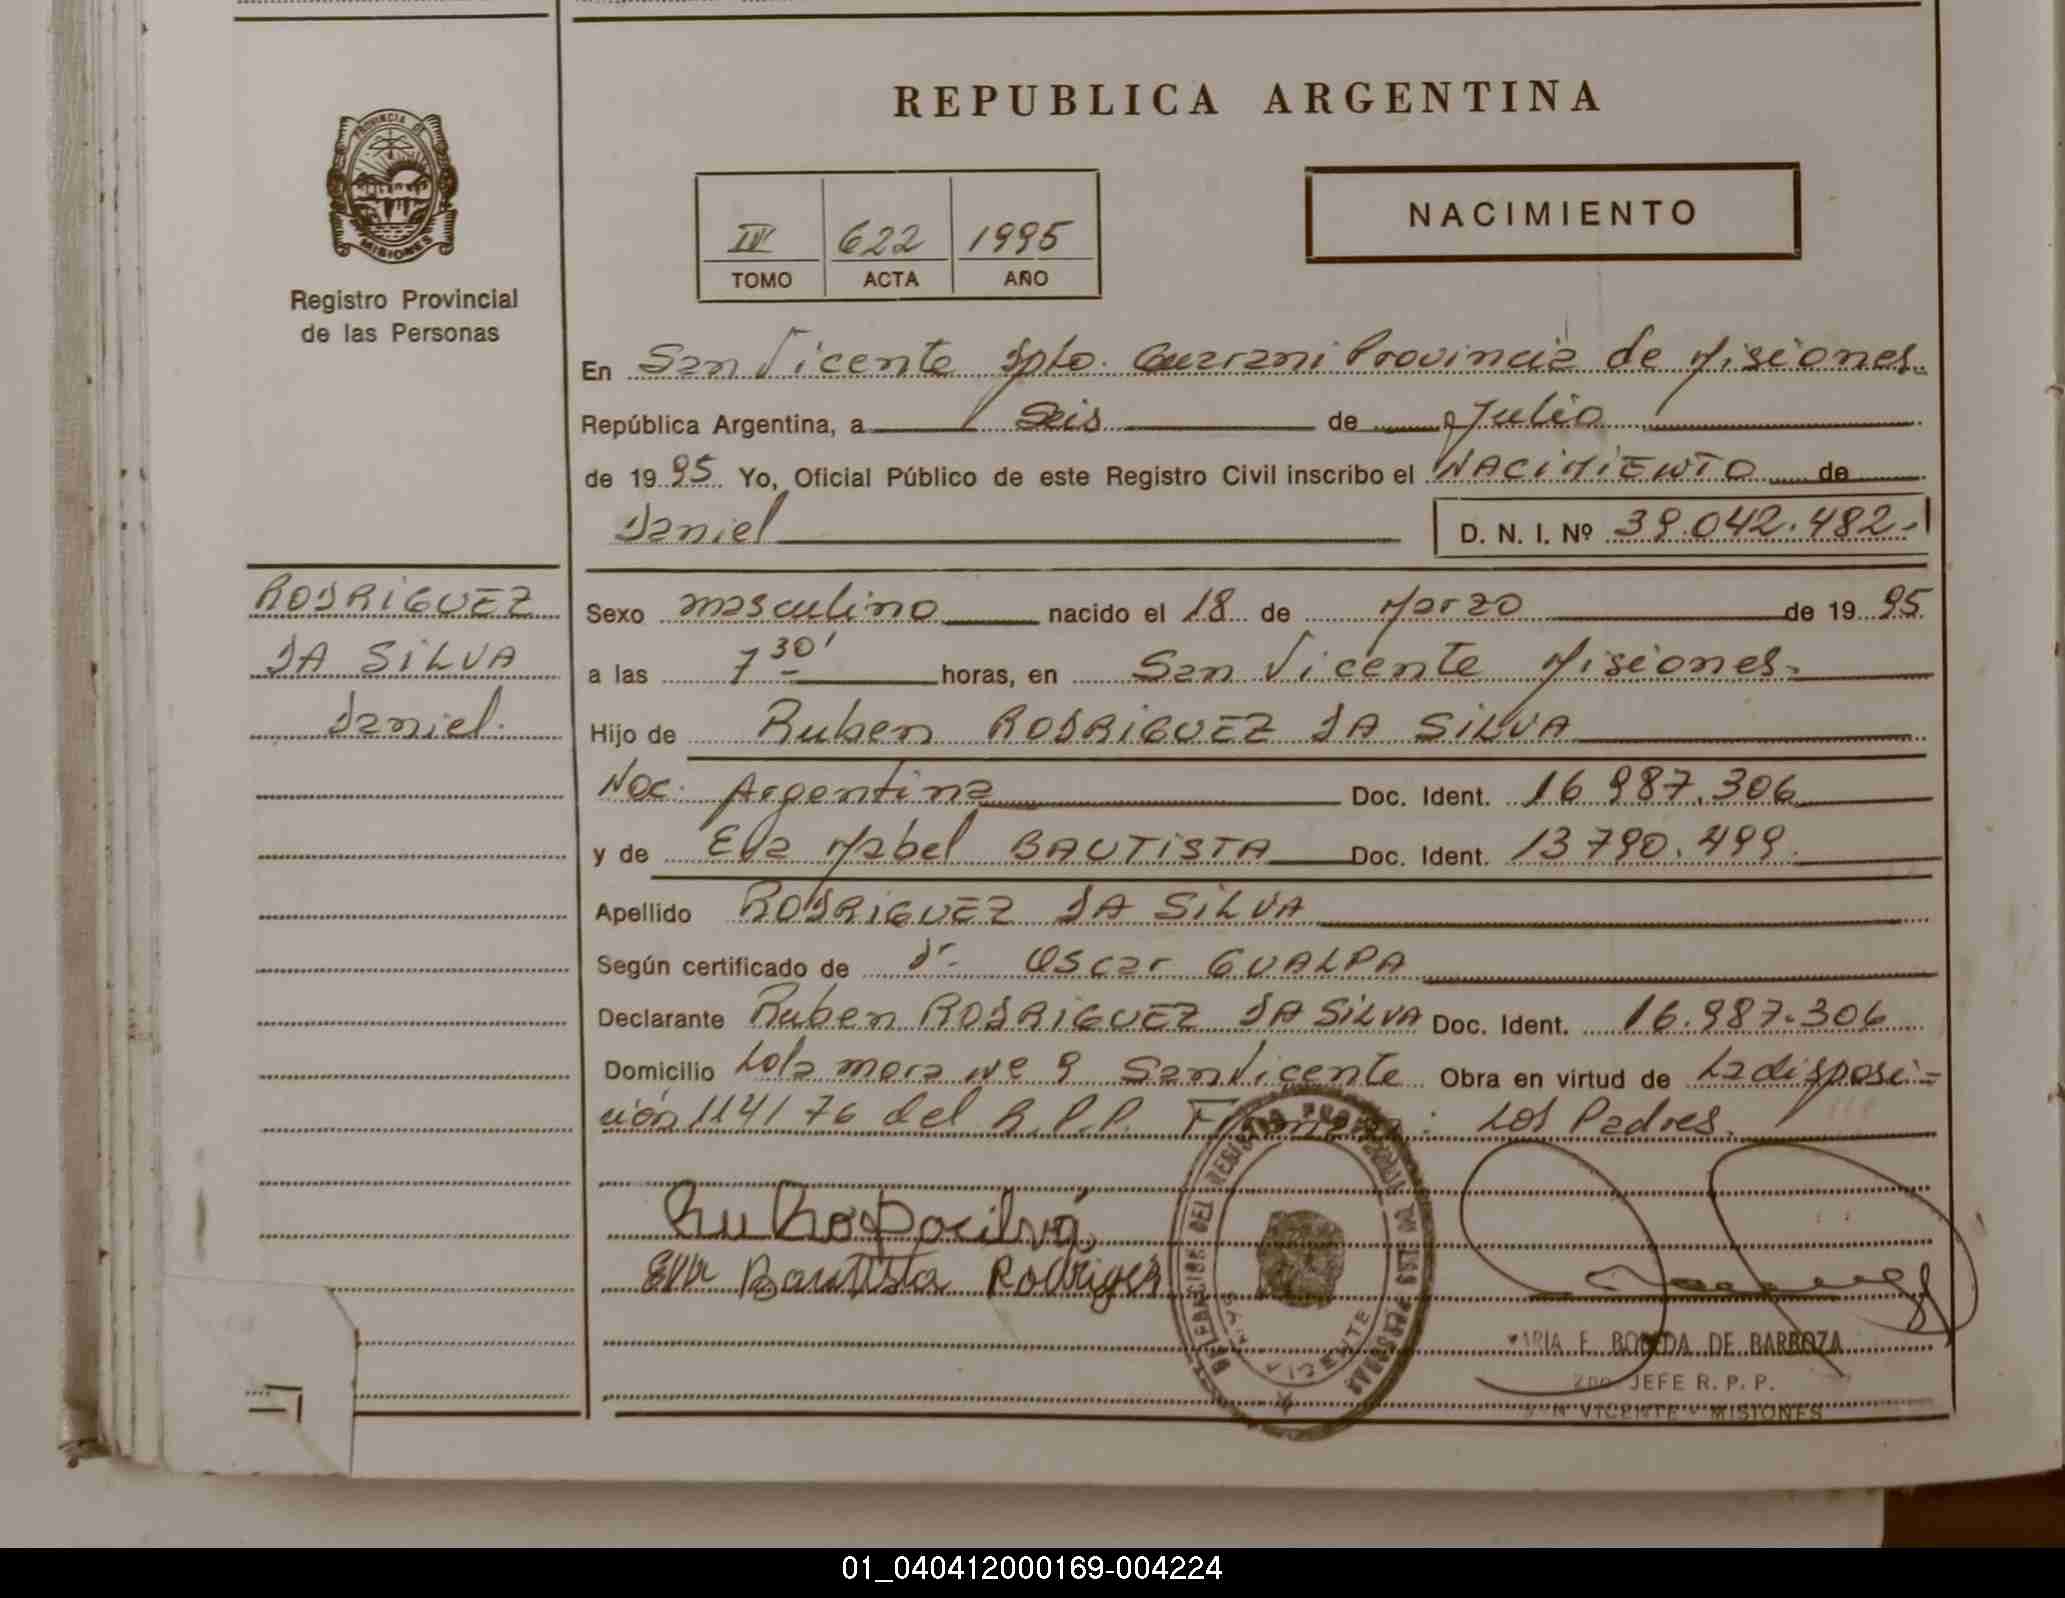 REPUBLICA ARGENTINA
PROVINCIA DE
MISIONES
Registro Provincial
de las Personas
IV 622 1995
TOMO ACTA AÑO
NACIMIENTO
En San Vicente Dpto. Guarani Provincia de Misiones.
República Argentina, a Seis de Julio
de 1995 Yo, Oficial Público de este Registro Civil inscribo el NACIMIENTO de
Daniel D. N. I. Nº 39.042.482.-
RODRIGUEZ
DA SILVA
Daniel.
Sexo masculino nacido el 18 de Marzo de 1995.
a las 7 30' horas, en San Vicente Misiones-
Hijo de Ruben RODRIGUEZ DA SILVA
Nac. Argentina Doc. Ident. 16 987.306
y de Eva Mabel BAUTISTA Doc. Ident. 13 790.499.
Apellido RODRIGUEZ DA SILVA
Según certificado de Dr. Oscar GUALPA
Declarante Ruben RODRIGUEZ DA SILVA Doc. Ident. 16.987.306
Domicilio Lola mora Nº 9 San Vicente Obra en virtud de La disposi-
ción 1141/76 del R.P.P. Firman: Los Padres.
Eva Bautista Rodriges
DELEGACION DEL REGISTRO PROVINCIAL DE LAS PERSONAS
SAN VICENTE
MARIA E. DE BARBOZA
2do. JEFE R. P. P.
SAN VICENTE - MISIONES
01_040412000169-004224